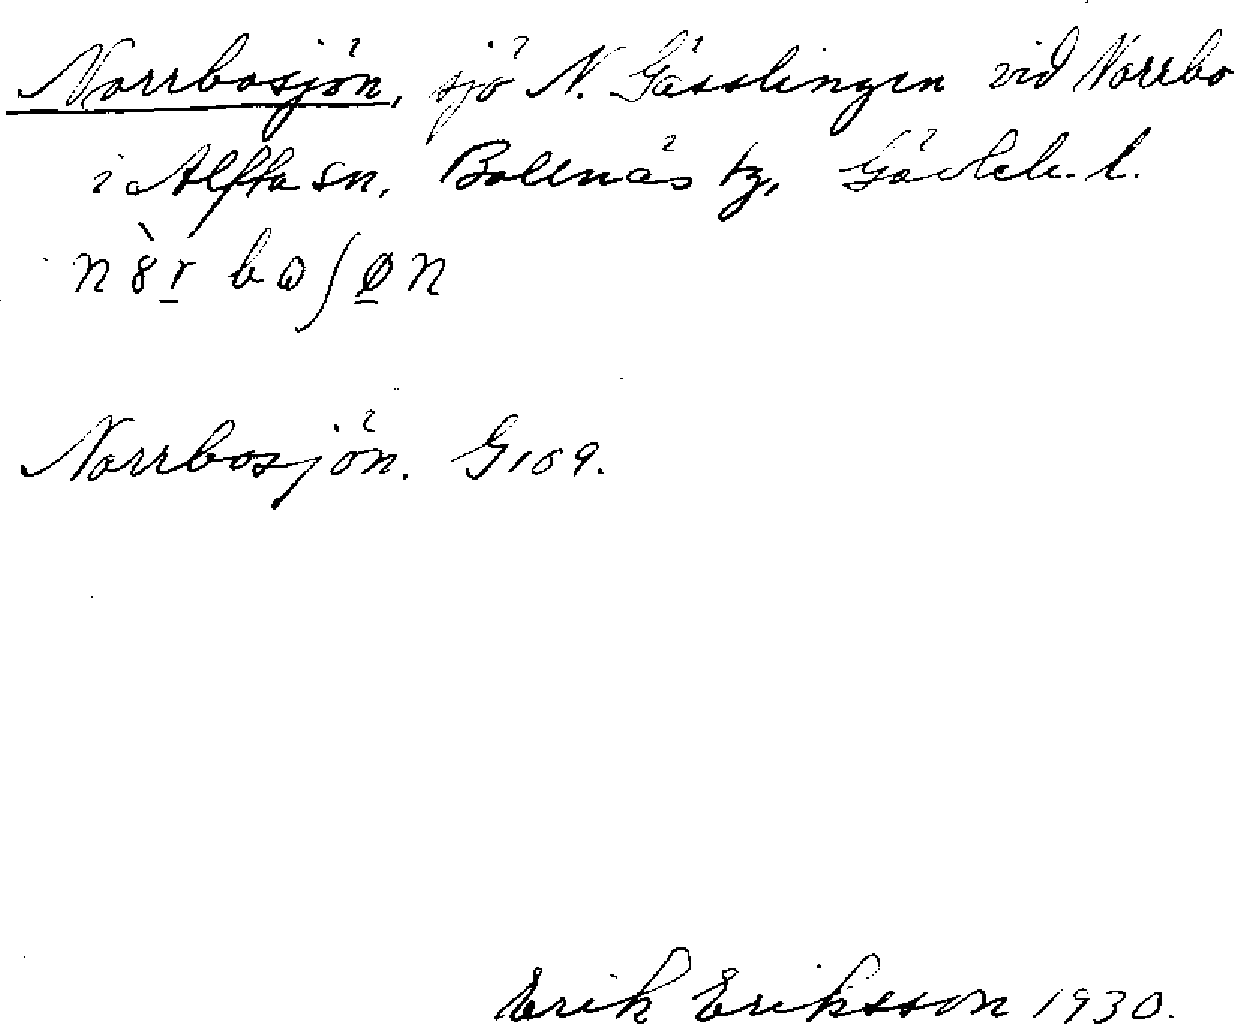 Norrbosjön, sjö N. Gässlingen vid Norrbo
i Alfta sn, Bollnäs tg, Gävleb. l.
n ò̤ r̲ b ω ʃ ø̲ n
Norrbosjön. G109.
Erik Eriksson 1930.